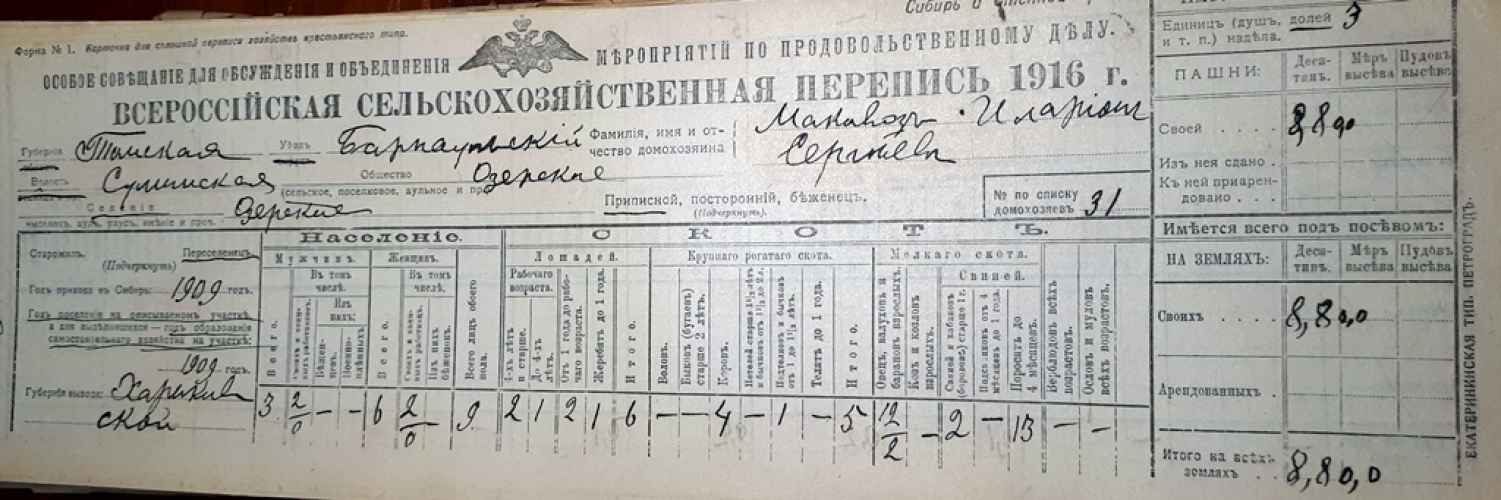 Сибирь и
Форма № 1. Карточка для сплошной переписи хозяйствъ крестьянскаго типа.
ОСОБОЕ СОВѢЩАНІЕ ДЛЯ ОБСУЖДЕНІЯ И ОБЪЕДИНЕНІЯ МѢРОПРІЯТІЙ ПО ПРОДОВОЛЬСТВЕННОМУ ДѢЛУ.
ВСЕРОССІЙСКАЯ СЕЛЬСКОХОЗЯЙСТВЕННАЯ ПЕРЕПИСЬ 1916 г.
Губернія Томская Уѣздъ Барнаульскій Фамилія, имя и отчество домохозяина Маковозъ Иларіонъ
Сергѣевъ
Волость Суминская Общество Озерское
(сельское, поселковое, аульное и пр.)
Селеніе Озерское Приписной, посторонній, бѣженецъ.
(Подчеркнуть).
№ по списку домохозяевъ 31
Старожилъ. Переселенецъ.
(Подчеркнуть)
Годъ прихода въ Сибирь: 1909 годъ.
Годъ поселенія на описываемомъ участкѣ,
а для выдѣлившихся — годъ образованія
самостоятельнаго хозяйства на участкѣ:
1909 годъ.
Губернія выхода: Харьков
ской
Населеніе.
Мужчинъ. Женщинъ.
Всего.
Въ томъ числѣ.
Изъ нихъ:
Бѣженцевъ.
Военноплѣнныхъ
Всего.
Въ томъ числѣ.
Изъ нихъ бѣженокъ.
Всего лицъ обоего пола.
3 2/0 — — 6 2/0 9
СКОТЪ.
Лошадей.
Рабочаго возраста.
4-хъ лѣтъ и старше.
До 4-хъ лѣтъ.
Отъ 1 года до рабочаго возраста.
Жеребятъ до 1 года.
Итого
Крупнаго рогатаго скота.
Воловъ.
Быковъ (бугаевъ) старше 2 лѣтъ.
Коровъ.
Нетелей старше 1½ лѣтъ и бычковъ отъ 1½ до 2 л.
Подтелковъ и бычковъ отъ 1 до 1½ лѣтъ.
Телятъ до 1 года.
Итого
Мелкаго скота.
Овецъ, валуховъ и барановъ взрослыхъ.
Козъ и козловъ взрослыхъ.
Свиней.
Свиней и кабановъ (борововъ) старше 1 г.
Подсвинковъ отъ 4 мѣсяцевъ до 1 года.
Поросятъ до 4 мѣсяцевъ.
Верблюдовъ всѣхъ возрастовъ.
Ословъ и муловъ всѣхъ возрастовъ.
2 1 2 1 6 — — 4 — 1 — 5 12/2 — 2 — 13 — —
Единицъ (душъ, долей и т. п.) надѣла. 3
ПАШНИ: Десятинъ. Мѣръ высѣва Пудовъ высѣва
Своей
Изъ нея сдано
Къ ней приарендовано
Имѣется всего подъ посѣвомъ:
НА ЗЕМЛЯХЪ: Десятинъ. Мѣръ высѣва Пудовъ высѣва
Своихъ 8,80,0
Арендованныхъ
Итого на всѣхъ земляхъ 8,80,0
ЕКАТЕРИНИНСКАЯ ТИП. ПЕТРОГРАДЪ.